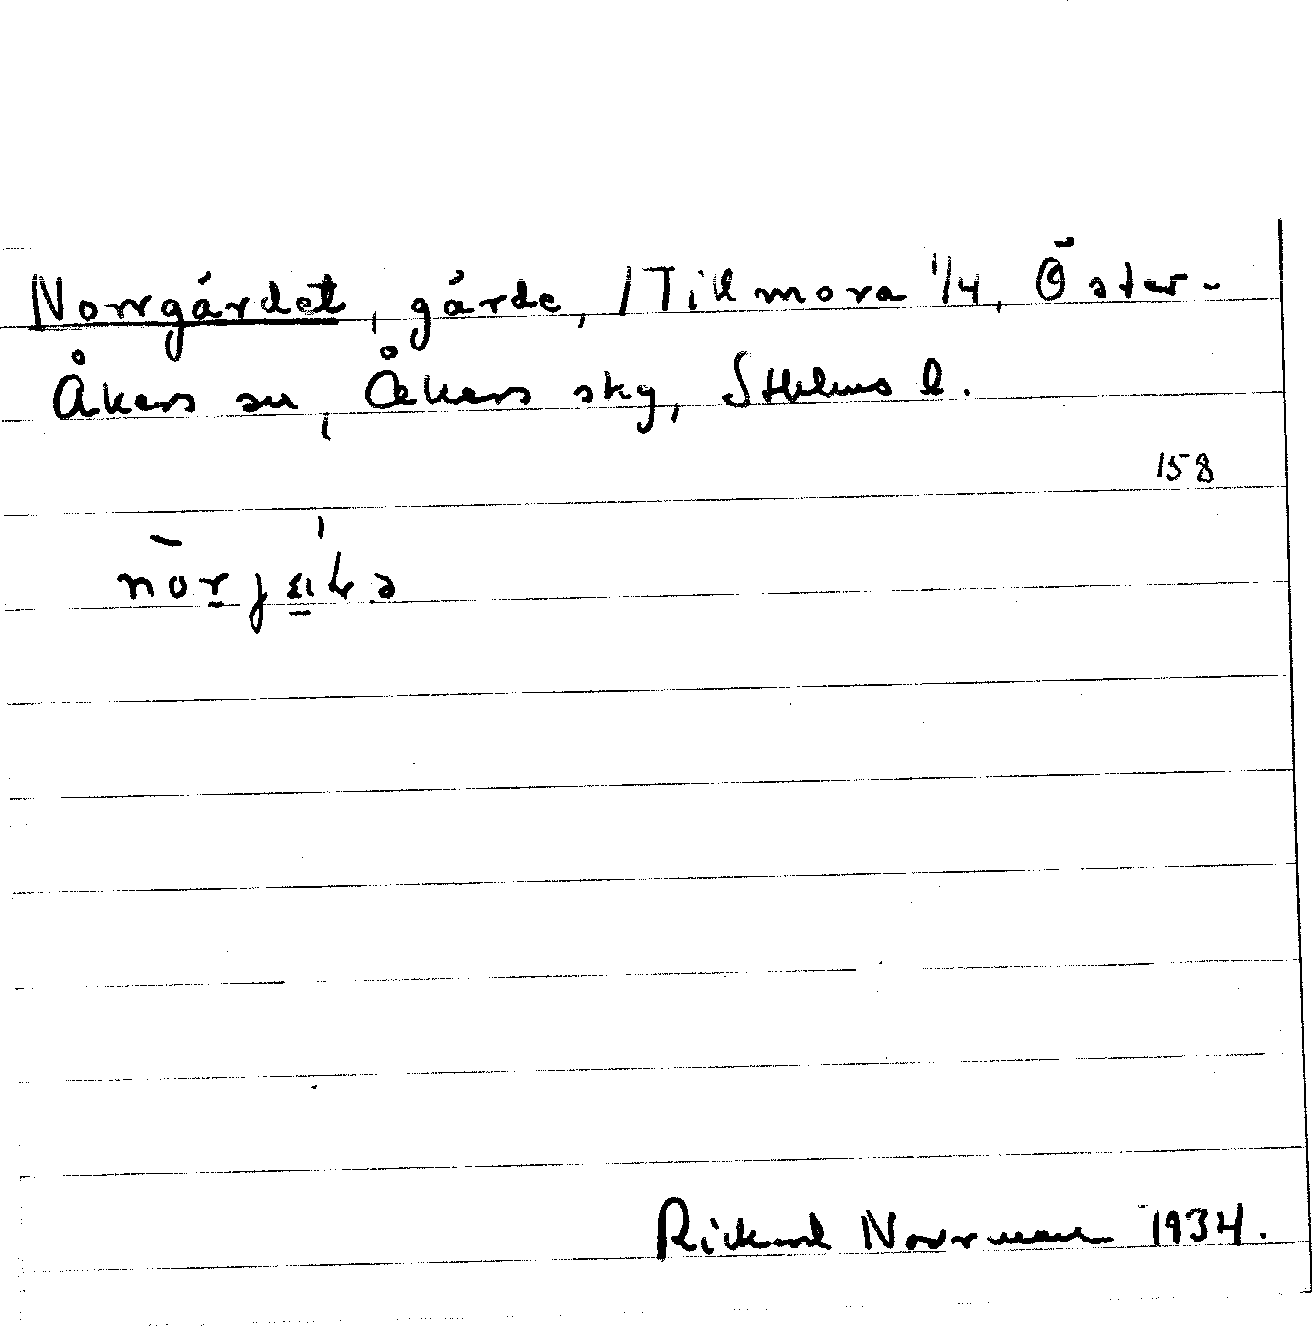 Norrgärdet, gärde, /Tillmora 1/4, Öster-
Åkers sn, Åkers skg, Sthlms l.
158
Rickard Norrman 1934.